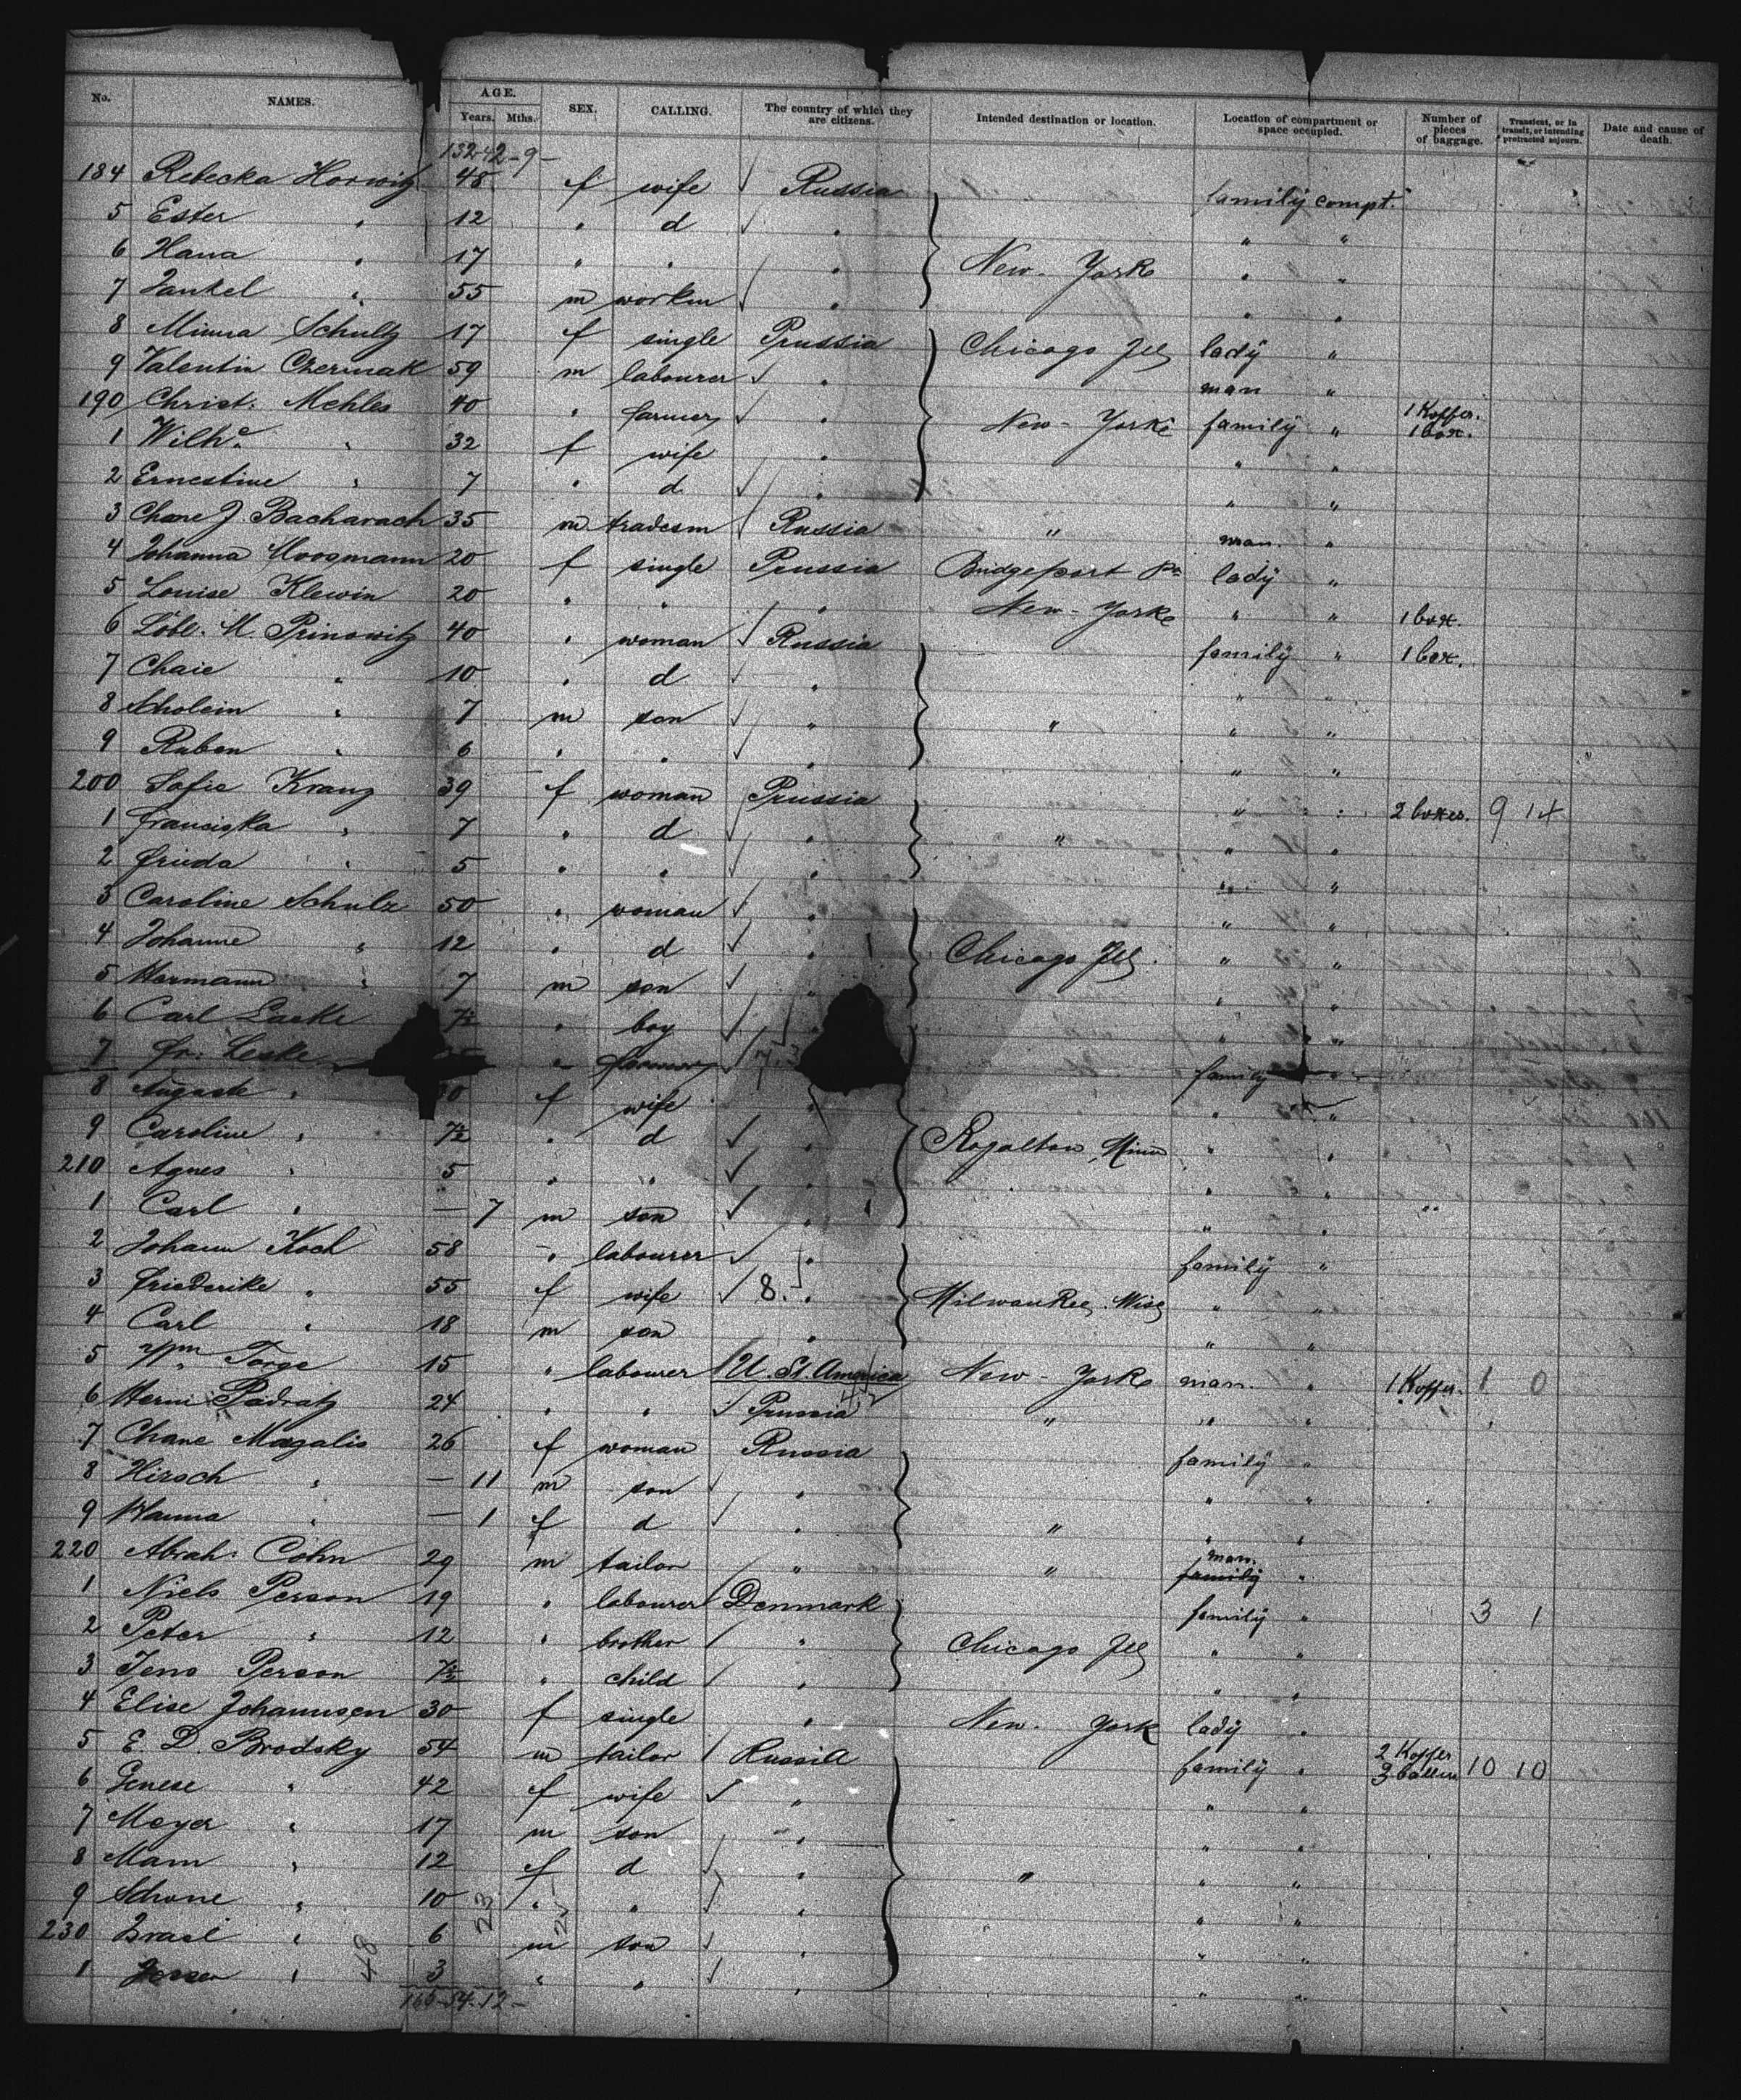 No. NAMES. AGE. Years. Mths. SEX. CALLING. The country of which they are citizens. Intended destination or location. Location of compartment or space occupied. Number of pieces of baggage. Transient, or in transit, or intending protracted sojourn. Date and cause of death.
132-42-9-
184 Rebecka Horwitz 48 f wife Russia family compt.
5 Ester " 12 " d " " "
6 Hana " 17 " " " New-York " "
7 Jankel " 55 m workm " " "
8 Minna Schultz 17 f single Prussia Chicago Ill lady "
9 Valentin Czermak 59 m labourer " man "
190 Christ. Mehles 40 " farmer " New-York family " 1 Koffer. 1 box.
1 Wilhe. " 32 f wife " " "
2 Ernestine " 7 " d " " "
3 Chone J. Bacharach 35 m tradesm Russia " man "
4 Johanna Moosmann 20 f single Prussia Bridgeport Pa lady "
5 Louise Klewin 20 " " " New-York " " 1 box.
6 Löbe. M. Prinowitz 40 " woman Russia family " 1 box.
7 Chaie " 10 " d " " "
8 Scholem " 7 m son " " " "
9 Ruben " 6 " " " " "
200 Sofie Kranz 39 f woman Prussia " " 2 boxes. 9 14
1 Franciska " 7 " d " " " "
2 Frieda " 5 " " " " "
3 Caroline Schulz 50 " woman " " "
4 Johanne " 12 " d " Chicago Ill. " "
5 Hermann " 7 m son " " "
6 Carl Laske 7½ " boy " " "
7 Fr. Leske " farmer 7. family "
8 Auguste " f wife " " "
9 Caroline " 7½ " d " Royalton, Minn " "
210 Agnes " 5 " " " " "
1 Carl " — 7 m son " " "
2 Johann Koch 58 " labourer " family "
3 Friederike " 55 f wife 8. " Milwaukee Wisc " "
4 Carl " 18 m son " " "
5 Wm Torge 15 " labourer U. St. America New-York man. " 1 Koffer. 1 0
6 Herm. Padratz 24 " " Prussia " " "
7 Chane Magalis 26 f woman Russia family "
8 Hirsch " — 11 m son " " "
9 Hanna " — 1 f d " " " "
220 Abrah. Cohn 29 m tailor " " man. family "
1 Niels Person 19 " labourer Denmark family " 3 1
2 Peter " 12 " brother " Chicago Ill " "
3 Jens Person 7½ " child " " "
4 Elise Johannsen 30 f single " New-York lady "
5 E. D. Brodsky 54 m tailor Russia family " 2 Koffer 3 ballen 10 10
6 Genese " 42 f wife " " "
7 Meyer " 17 m son " " "
8 Mam " 12 f d " " " "
9 Schone " 10 " " " " "
230 Israel " 6 m son " " "
1 " 3 " " " " "
48 23 25
160-54-12-